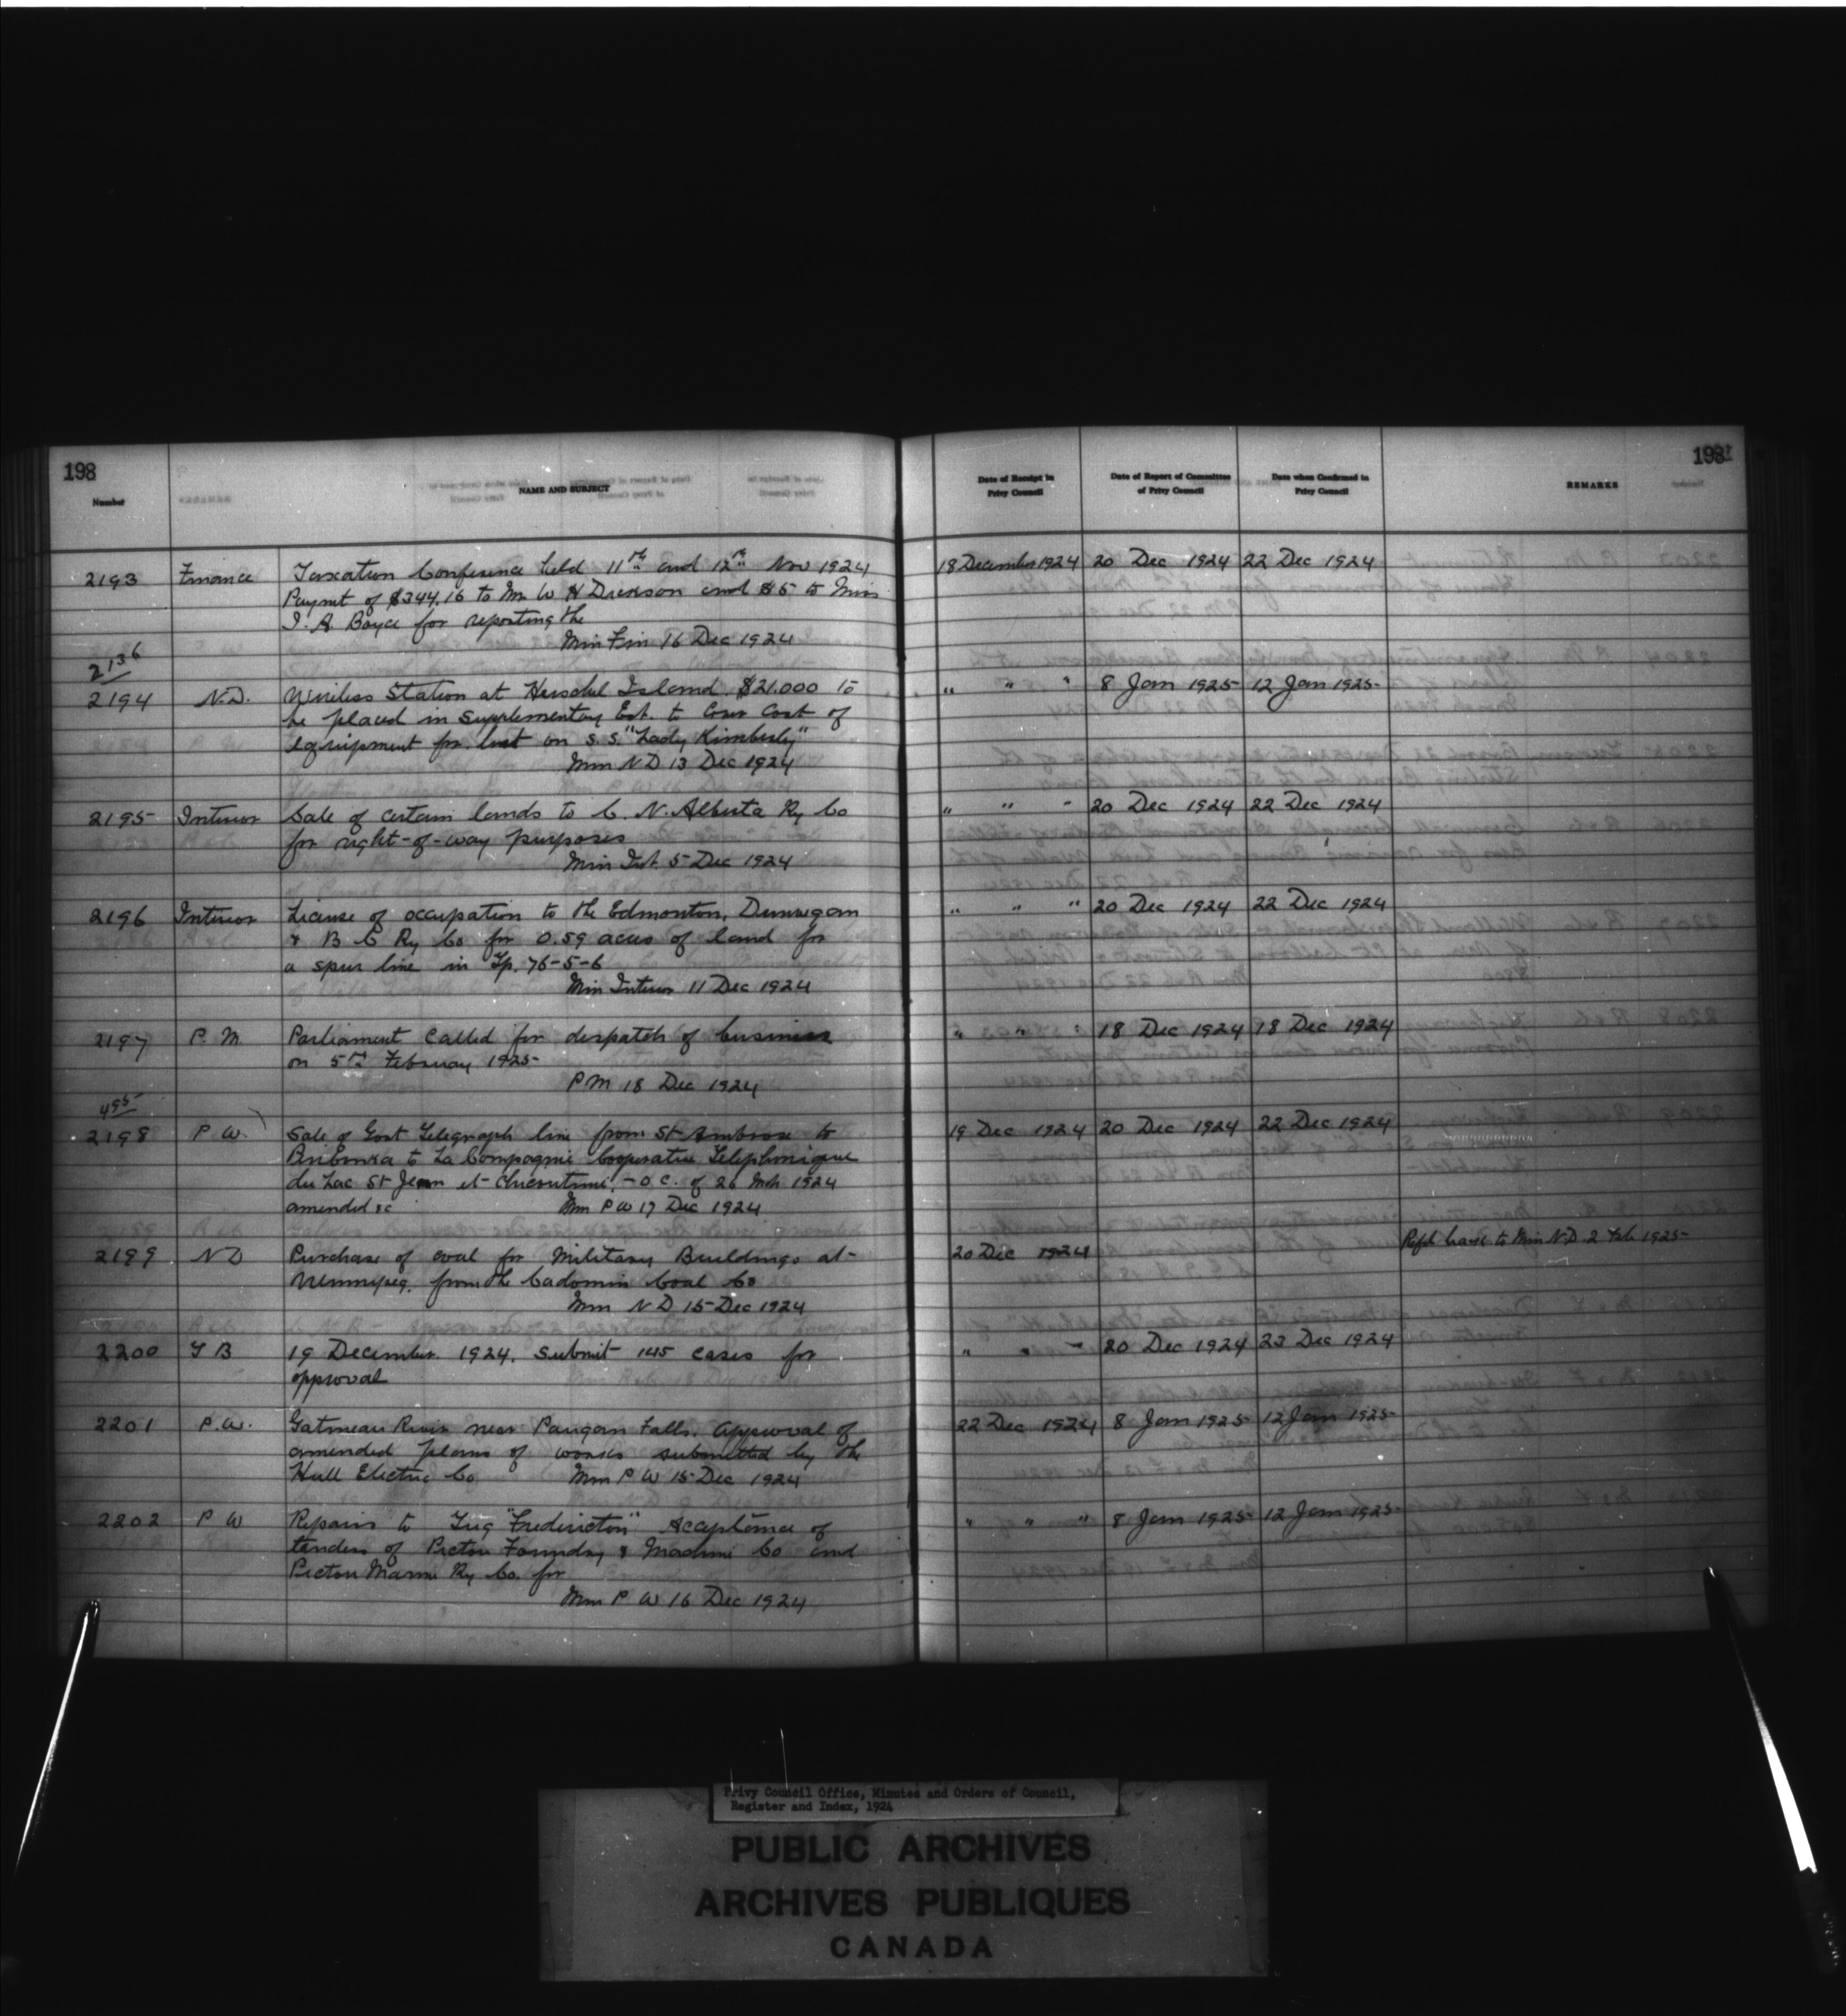 198
198½
Number
NAME AND SUBJECT
Date of Receipt in Privy Council
Date of Report of Committee of Privy Council
Date when Confirmed in Privy Council
REMARKS
2193 Finance Taxation Conference held 11th and 12th Nov 1924 18 December 1924 20 Dec 1924 22 Dec 1924
Paymt of $344.16 to Mr W H Dickson and $5 to Miss
I. A. Boyce for reporting the
Min Fin 16 Dec 1924
2136
2194 N.D. Wireless Station at Herschel Island. $21.000 to " " " 8 Jan 1925 12 Jan 1925
be placed in supplementary Est. to Cover Cost of
equipment for. lost on S.S. "Lady Kimberly"
Min N D 13 Dec 1924
2195 Interior Sale of certain lands to C. N. Alberta Ry Co " " " 20 Dec 1924 22 Dec 1924
for right-of-way purposes
Min Int. 5 Dec 1924
2196 Interior License of occupation to the Edmonton, Dunvegan " " " 20 Dec 1924 22 Dec 1924
& B C Ry Co for 0.59 acres of land for
a spur line in Tp. 76-5-6
Min Interior 11 Dec 1924
2197 P. M. Parliament Called for despatch of business " " " 18 Dec 1924 18 Dec 1924
on 5th February 1925
P M 18 Dec 1924
495
2198 P. W. Sale of Govt Telegraph line from St Ambrose to 19 Dec 1924 20 Dec 1924 22 Dec 1924
Peribonka to La Compagnie Cooperative Telephonique
du Lac St Jean et Chicoutimi, - O.C. of 26 Mch 1924
amended &c Min P W 17 Dec 1924
2199 N D Purchase of coal for Military Buildings at 20 Dec 1924 Refd back to Min N.D. 2 Feb 1925
Winnipeg. from the Cadomin Coal Co
Min N D 15 Dec 1924
2200 T B 19 December. 1924. Submit 145 cases for " " " 20 Dec 1924 23 Dec 1924
approval
2201 P.W. Gatineau River near Paugan Falls. Approval of 22 Dec 1924 8 Jan 1925 12 Jan 1925
amended plans of works submitted by the
Hull Electric Co Min P W 15 Dec 1924
2202 P W Repairs to Tug "Fredericton" Acceptance of " " " 8 Jan 1925 12 Jan 1925
tenders of Pictou Foundry & Machine Co and
Pictou Marine Ry Co. for
Min P W 16 Dec 1924
Privy Council Office, Minutes and Orders of Council,
Register and Index, 1924
PUBLIC ARCHIVES
ARCHIVES PUBLIQUES
CANADA